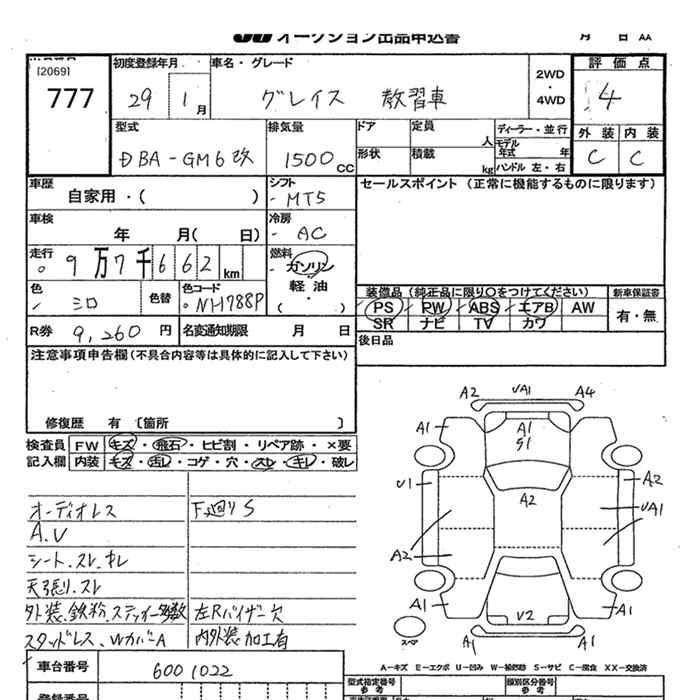 JU オークション出品申込書 月 日 AA
[2069]
777
初度登録年月 車名・グレード
29 1 月 グレイス 教習車
2WD
・
4WD
評価点
4
外装 内装
C C
型式 排気量 ドア 定員 人 ディーラー・並行
DBA-GM6改 1500 CC 形状 積載 kg モデル年式 年
ハンドル 左・右
車歴 自家用・( ) シフト MT5
セールスポイント (正常に機能するものに限ります)
車検 年 月( 日) 冷房 AC
走行 9万7千662km 燃料 ガソリン
軽油
( ・ )
色 シロ 色替 色コード NH788P
装備品 (純正品に限り○をつけてください) 新車保証書
PS PW ABS エアB AW 有・無
SR ナビ TV カワ
R券 9,260 円 名変通知期限 月 日
後日品
注意事項申告欄(不具合内容等は具体的に記入して下さい)
修復歴 有 [箇所 ]
検査員 FW キズ・飛石・ヒビ割・リペア跡・×要
記入欄 内装 キズ・汚レ・コゲ・穴・スレ・キレ・破レ
オーディオレス 下廻りS
A.V
シート.スレ.キレ
天張り.スレ
外装.鉄粉.ステッカー多数 左Rバイザー欠
スタッドレス、WカバーA 内外装加工有
A2 UA1 A4
A1 A1 A1
G1
U1 A2 A2
UA1
A2
A1 U2 A1
スペア A1 A1
A-キズ E-エクボ U-凹み W-補修跡 S-サビ C-腐食 XX-交換済
車台番号 6001022
型式指定番号 参考 類別区分番号 参考
登録番号